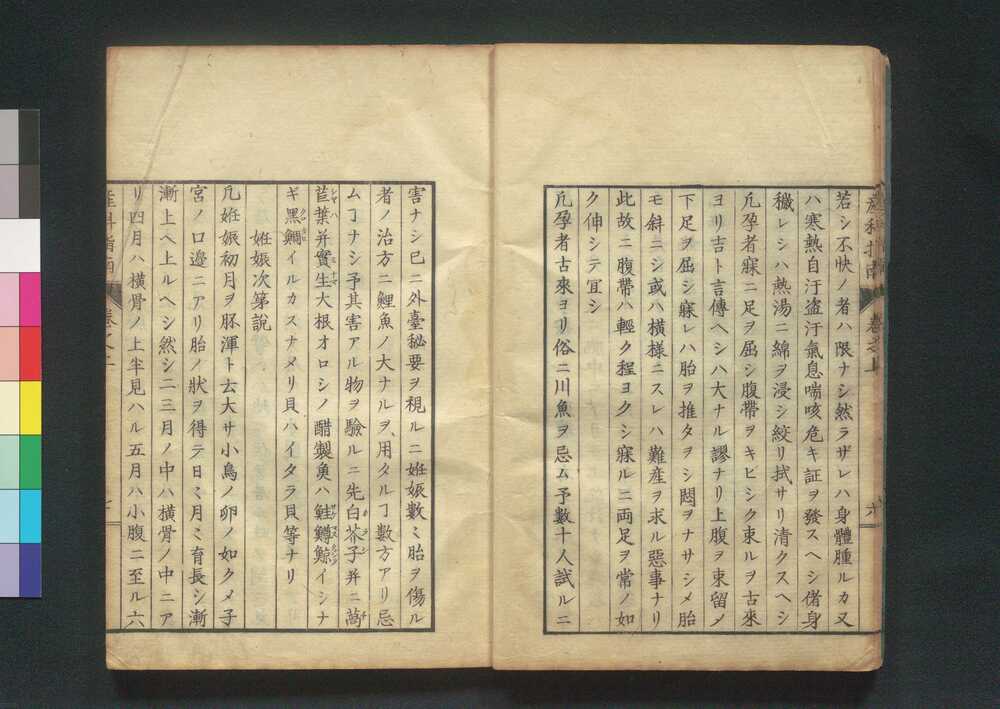 産科指南 卷之上 六
若シ不快ノ者ハ限ナシ然ラザレハ身體腫ルカ又
ハ寒熱自汗盗汗氣息喘咳危キ証ヲ發スヘシ偖身
穢レシハ熱湯ニ綿ヲ浸シ絞リ拭サリ清クスヘシ
凡孕者寐ニ足ヲ屈シ腹帶ヲキビシク束ルヲ古來
ヨリ吉ト言傳ヘシハ大ナル謬ナリ上腹ヲ束留メ
下足ヲ屈シ寐レハ胎ヲ推タヲシ悶ヲナサシメ胎
モ斜ニシ或ハ横様ニスレハ難産ヲ求ル惡事ナリ
此故ニ腹帶ハ輕ク程ヨクシ寐ルニ両足ヲ常ノ如
ク伸シテ宜シ
凡孕者古來ヨリ俗ニ川魚ヲ忌ム予數十人試ルニ
害ナシ已ニ外臺秘要ヲ視ルニ姙娠數ミ胎ヲ傷ル
者ノ治方ニ鯉魚ノ大ナルヲ用タルヿ數方アリ忌
ムヿナシ予其害アル物ヲ驗ルニ先白芥子并ニ萵
苣葉并實生大根オロシノ醋製魚ハ鮭鱒鯨イシナ
ギ黒鯛イルカスナメリ貝ハイタラ貝等ナリ
姙娠次第説
凡姙娠初月ヲ胚渾ト云大サ小鳥ノ卵ノ如クメ子
宮ノ口邊ニアリ胎ノ狀ヲ得テ日ミ月ミ育長シ漸
漸上ヘ上ルヘシ然シ二三月ノ中ハ横骨ノ中ニア
リ四月ハ横骨ノ上半見ハル五月ハ小腹ニ至ル六